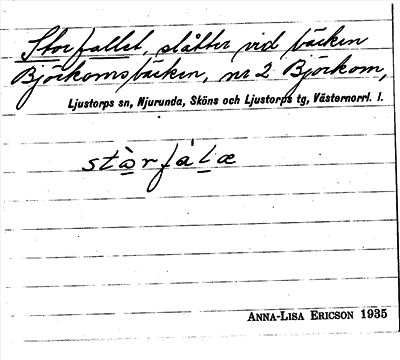 Storfallet, slåtter vid bäcken
Björkomsbäcken, nr 2 Björkom,
Ljustorps sn, Njurunda, Sköns och Ljustorps tg, Västernorrl. l.
stò̱rfàḻæ
ANNA-LISA ERICSON 1935